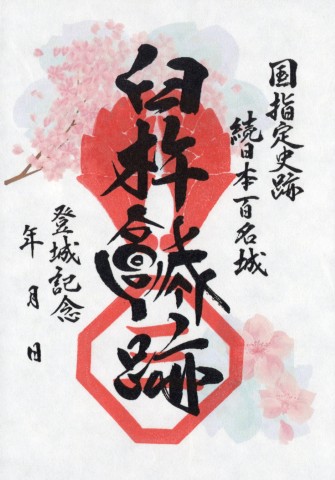 国指定史跡
続日本百名城
臼杵城跡
登城記念
年月日